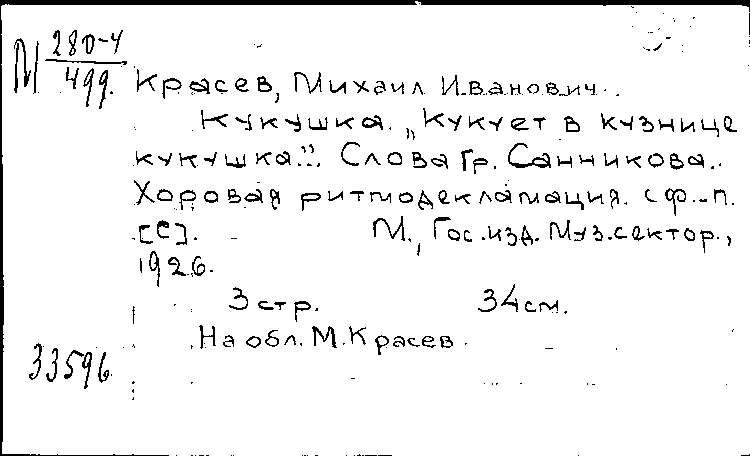 М 280-4
499.
Красев, Михаил Иванович.
Кукушка. „Кукует в кузнице
кукушка.". Слова Гр. Санникова.
Хоровая ритмодекламация. с ф.-п.
[С]. М., Гос. изд. Муз. сектор.,
1926.
3 стр. 34 см.
На обл. М. Красев.
33596